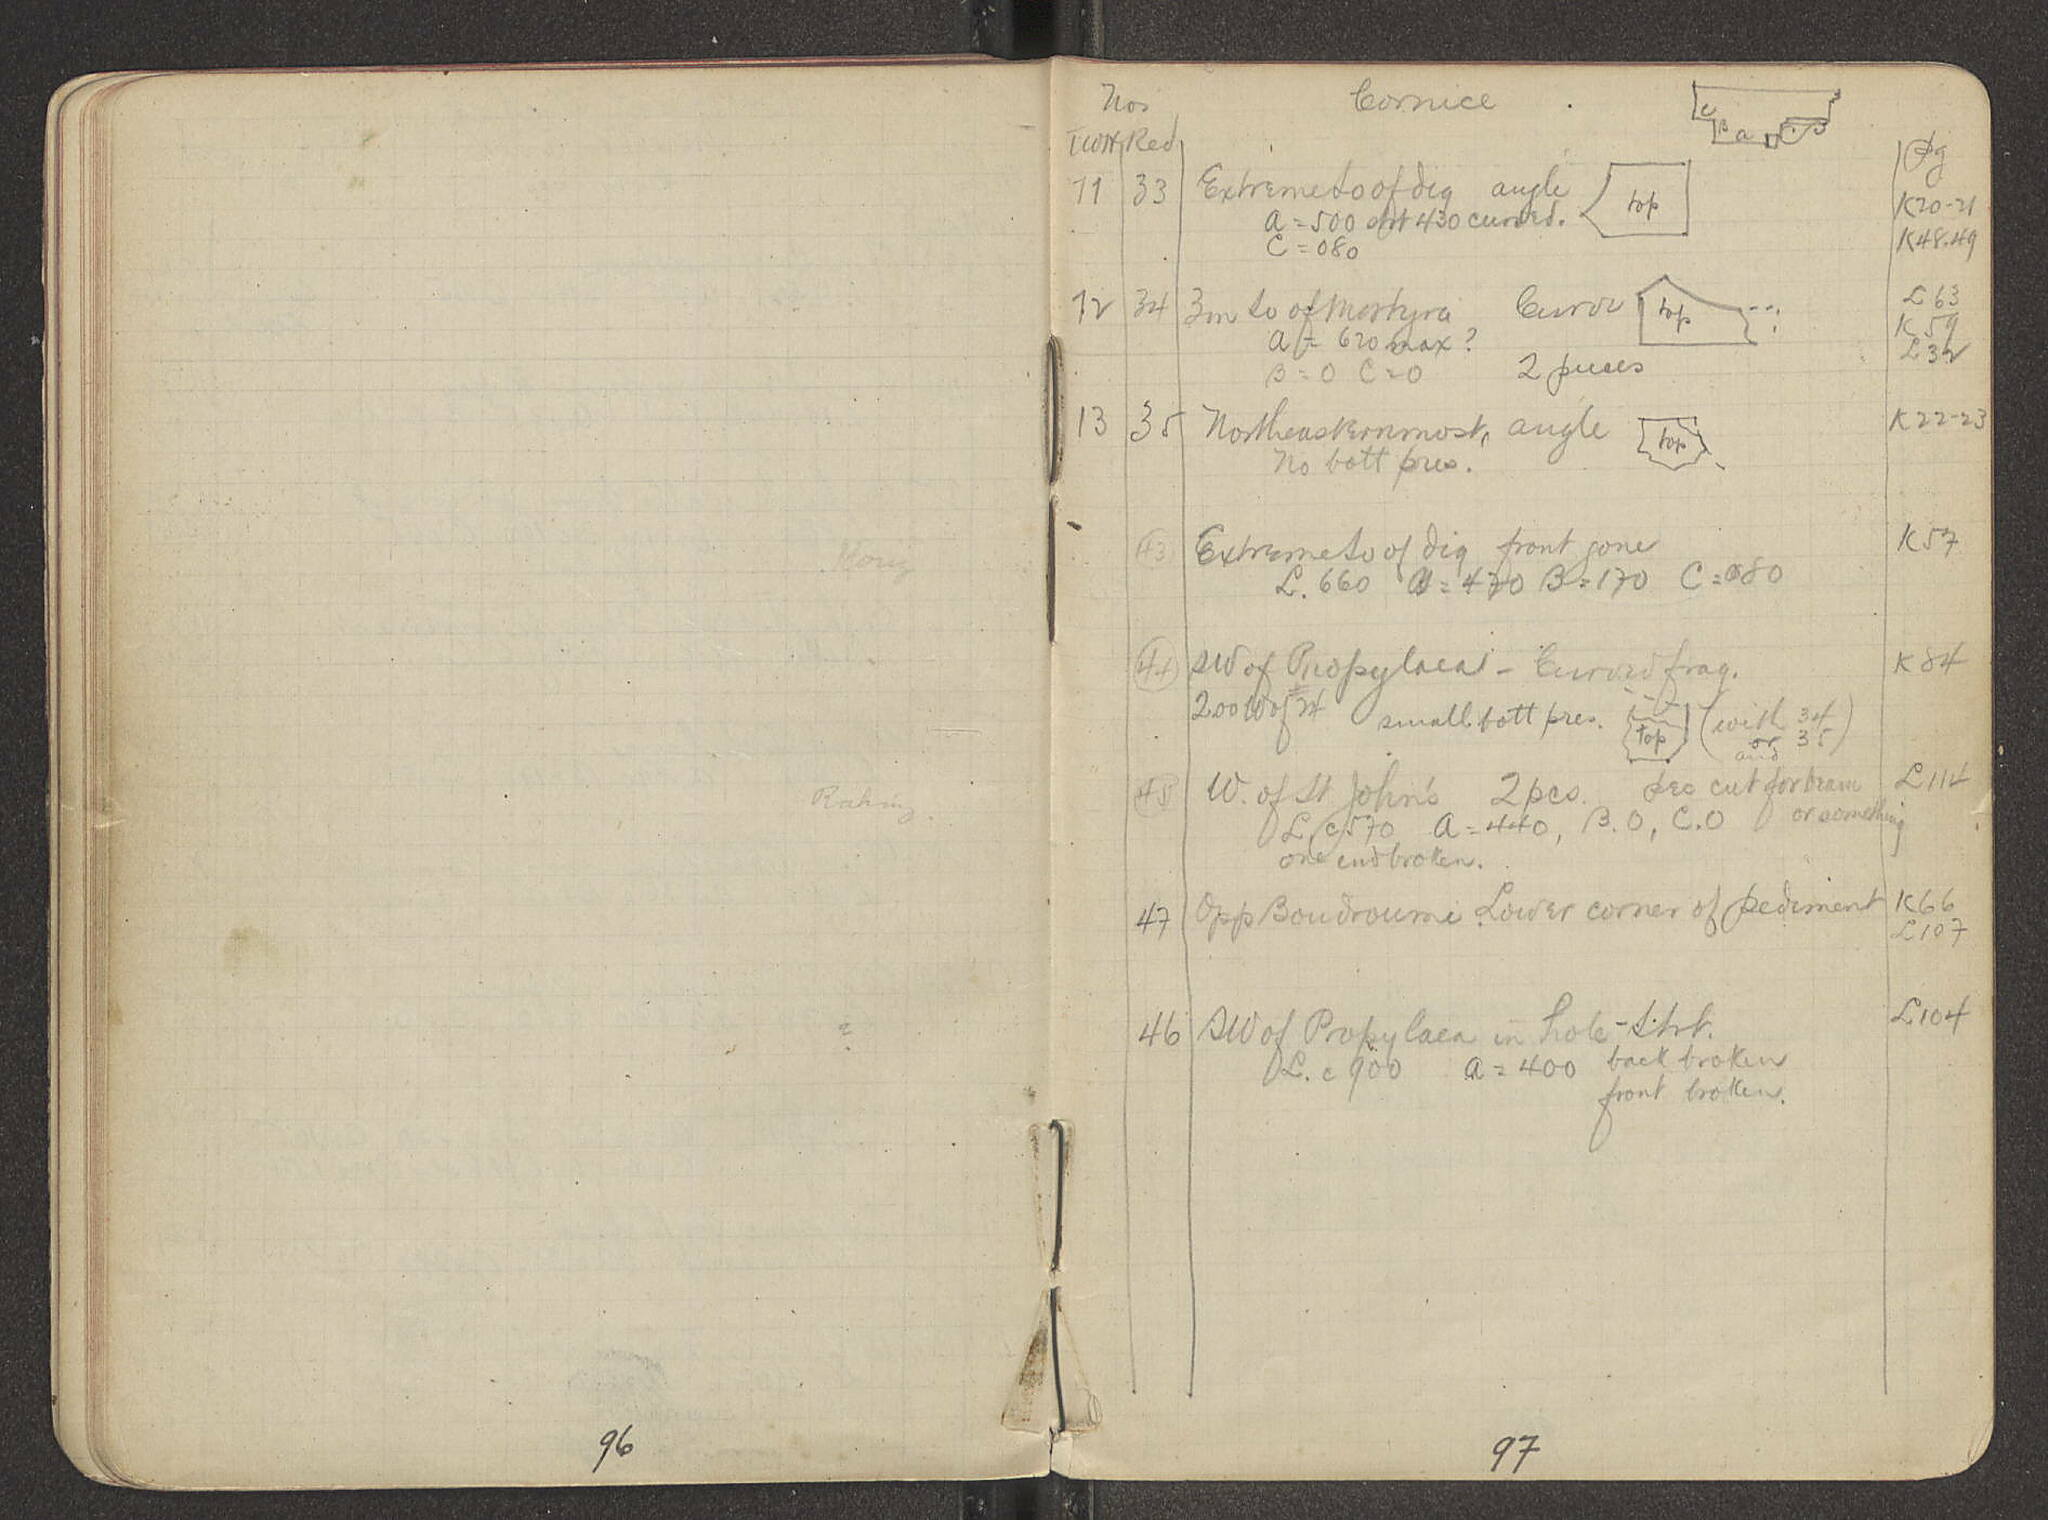 Horiz
Raking
?
96
Nos
Cornice
C B A C B
TWH Red
Pg
11 33 Extreme So of dig angle top
K20-21
A = 500 ort 430 curved.
K48-49
C = 080
12 34 3m So of Martyra Curve top
L63
K59
A = 620 max?
L32
B = 0 C = 0 2 pieces
13 35 Northeasternmost, angle top K22-23
No bott pres.
43 Extreme So of dig front gone K57
L. 660 A = 470 B = 170 C = 080
44 SW of Propylaea - Curved frag. K84
200 W of 24 small bott pres. top (with 34
or 35)
and
45 W. of St John's 2 pcs. cut for beam L114
or something
L. c 570 A = 440, B. 0, C. 0
one end broken.
47 Opp Boudroumi Lower corner of pediment K66
L107
46 SW of Propylaea in hole - Strt. L104
L. c 900 A = 400 back broken
front broken.
97